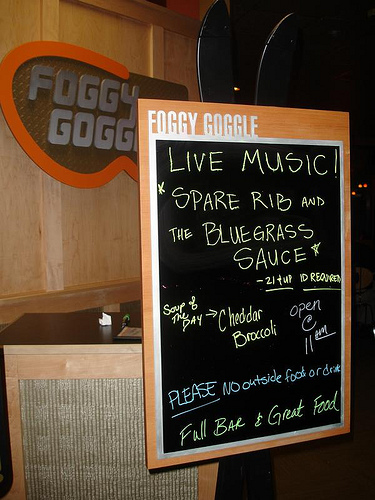 FOGGY
GOGG
FOGGY GOGGLE
LIVE MUSIC!
*SPARE RIB AND
THE BLUEGRASS
SAUCE*
-21+UP ID REQUIRED
Soup of
THE DAY → Cheddar
Broccoli
open
@
11am
PLEASE NO outside food or drink
Full BAR & Great Food